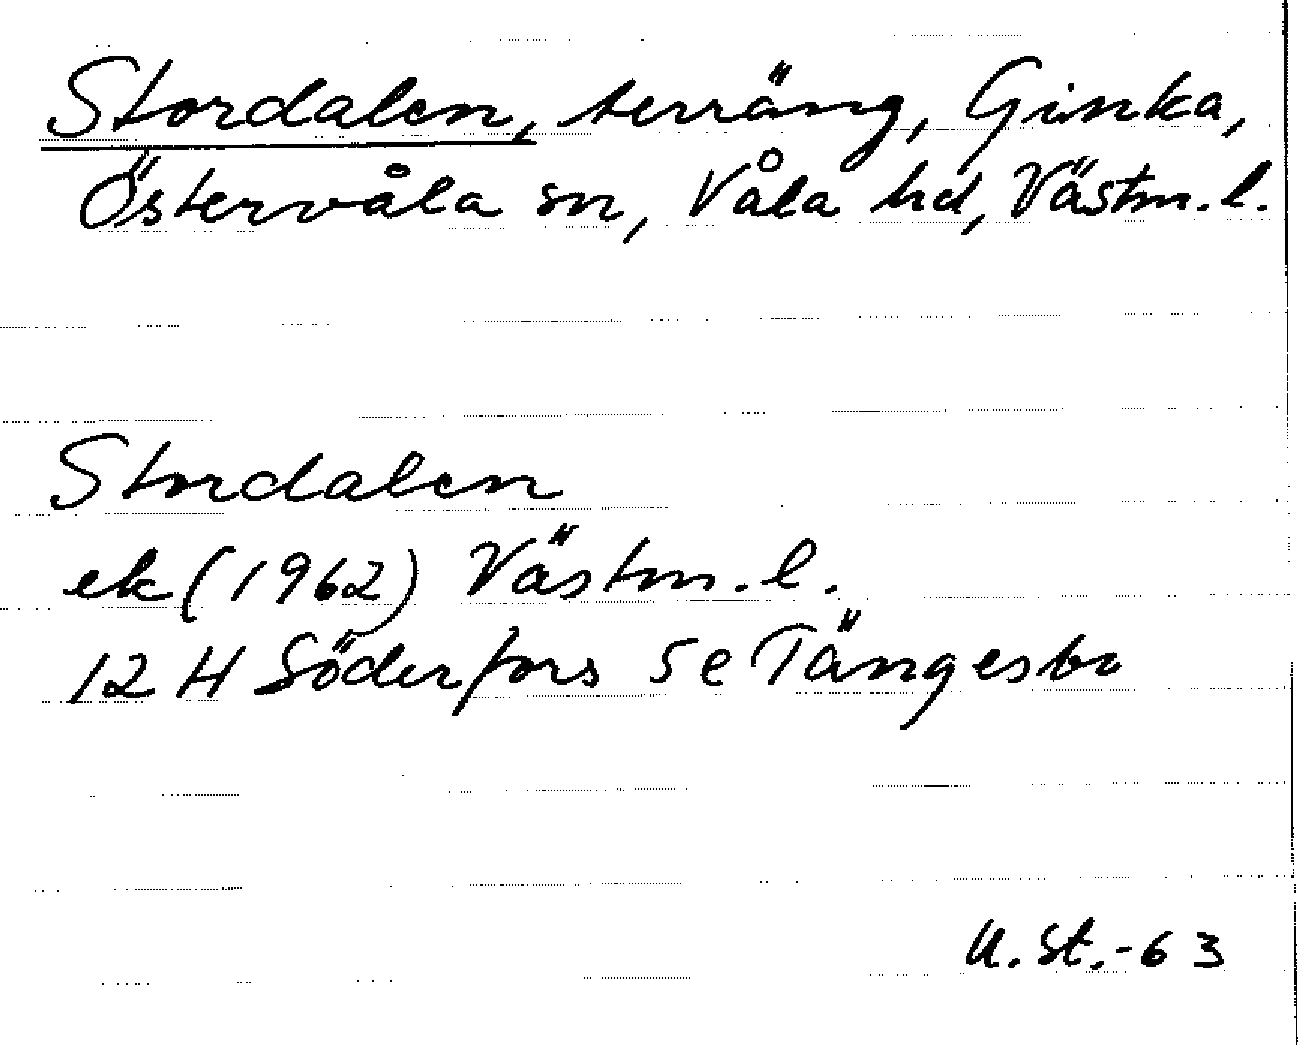 Stordalen, terräng, Ginka,
Östervåla sn, Våla hd, Västm. l.
Stordalen
ek (1962) Västm. l.
12 H Söderfors 5 e Tängesbo
U. St. -63